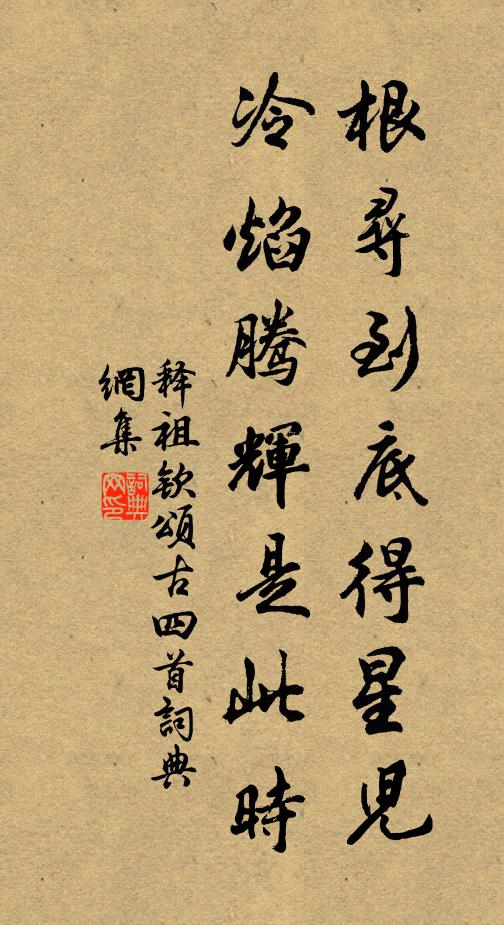 根尋到底得星児
冷焰騰輝是此時
释祖钦頌古四首詞典
網集
詞典
网印